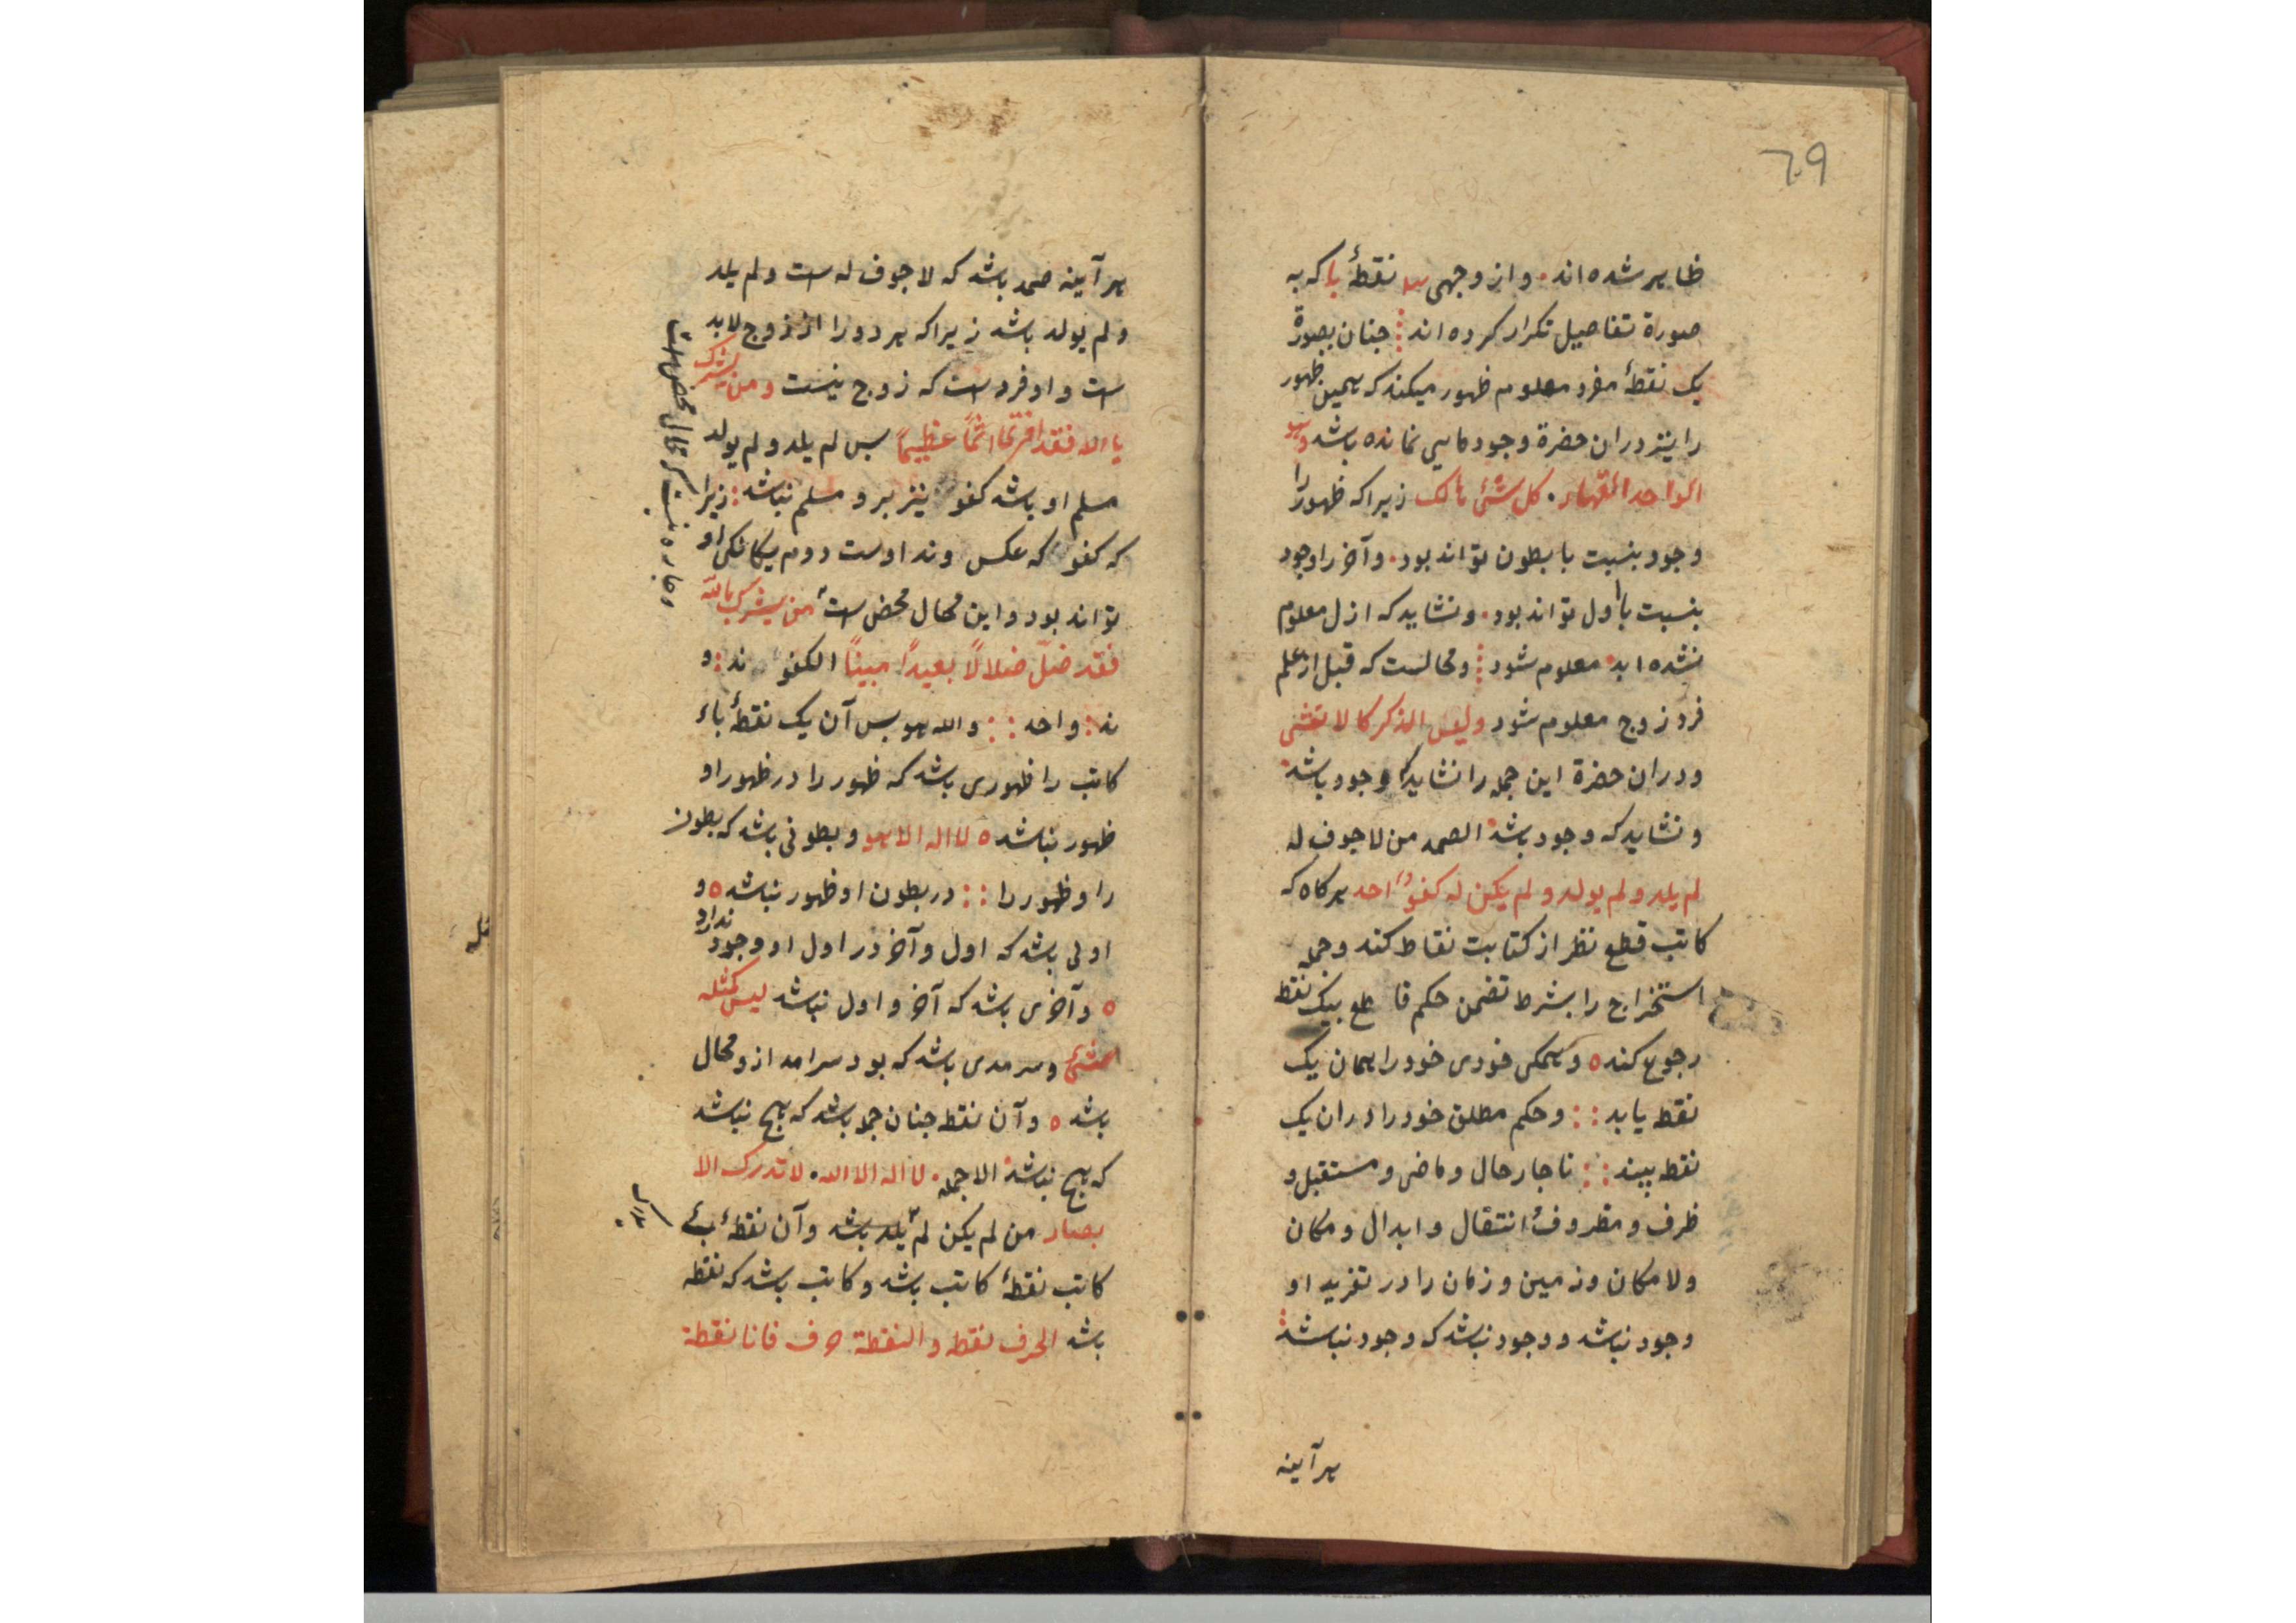 ٦٩
ظاهر شده‌اند . و از وجهی نقطهٔ با که به
صورة تفاصیل تکرار کرده‌اند جنان بصورة
یک نقطهٔ مفرد معلوم ظهور میکند که همین ظهور
را نیز دران حضرة وجود ماهی نمانده باشد وهو
الواحد القهار . کل شیٔ هالک زیرا که ظهور را
وجود بنسبت با بطون تواند بود . و آخر را وجود
بنسبت با اول تواند بود . و نشاید که ازل معلوم
نشده ابد معلوم شود و محالست که قبل از علم
فرد زوج معلوم شود ولیس الذکر کالانثی
و دران حضرة این جمله را نشاید که وجود باشد
و نشاید که وجود باشد الصمد من لا جوف له
لم یلد و لم یولد و لم یکن له کفوا احد هرکاه که
کاتب قطع نظر از کتابت نقاط کند و جمله
استخراج را بشرط تضمن حکم قاطع بیک نقطه
رجوع کند ه و همکی خودی خود را همان یک
نقطه یابد : : و حکم مطلق خود را دران یک
نقطه بیند : : ناجار حال و ماضی و مستقبل و
ظرف و مظروف و انتقال و ابدال و مکان
و لا مکان و زمین و زمان را در تفرید او
وجود نباشد و وجود نباشد که وجود نباشد
هرآینه
هرآینه صمد باشد که لا جوف له است و لم یلد
و لم یولد باشد زیرا که هر دو را از زوج لابد
است و او فرد است که زوج نیست ومن یشرک
باالله فقد افتری اثماً عظیماً بس لم یلد و لم یولد
مسلم او باشد کفو نیز برو مسلم نباشد : زیرا
که کفو که عکس و ند اوست دوم یکانکی او
تواند بود و این محال محض است من یشرک بالله
فقد ضلّ ضلالاً بعیداً مبیناً الکفو ند : و
ند : واحد : : والله هو بس آن یک نقطهٔ باء
کاتب را ظهوری باشد که ظهور را در ظهور او
ظهور نباشد ه لا اله الا هو و بطونی باشد که بطون
را و ظهور را : : در بطون او ظهور نباشد ه و
اولی باشد که اول و آخر در اول او وجود ندارد
ه و آخری باشد که آخر و اول نباشد لیس کمثله
شیٔ و سرمدی باشد که بود سرامد ازو محال
باشد ه و آن نقطه جنان جمله باشد که هیچ نباشد
که هیچ نباشد الا جمله . لا اله الا الله . لا تدرک الا
بصار من لم یکن لم یلد باشد و آن نقطهٔ بئ
کاتب نقطهٔ کاتب باشد و کاتب باشد که نقطه
باشد الحرف نقطه و النقطة حرف فانا نقطة